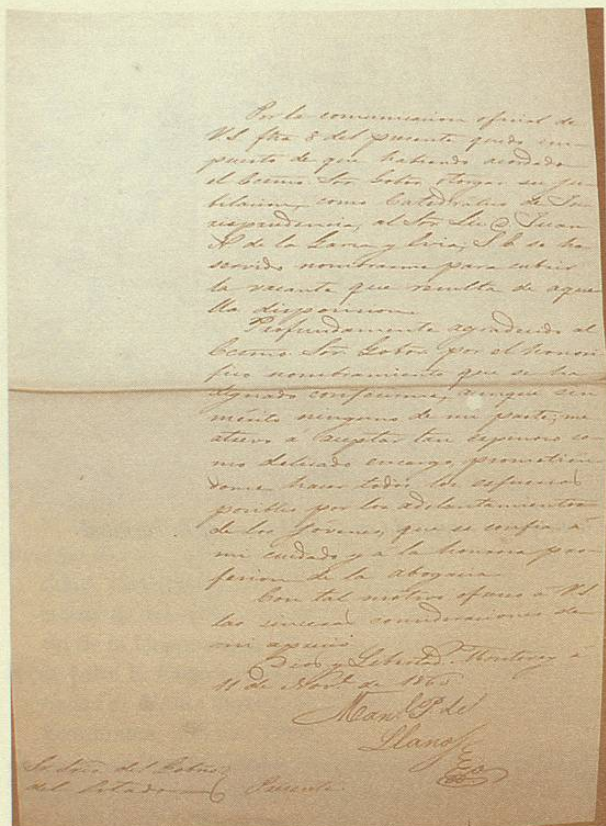 Por la comunicacion oficial de
V.S. fha 8 del presente quedo im-
puesto de que habiendo acordado
el Ecsmo. Sor. Gobor. otorgar su ju-
bilacion, como Catedratico de Ju-
risprudencia, al Sor. Lic. D. Juan
N. de la Garza y Evia, S.E. se ha
servido nombrarme para cubrir
la vacante que resulta de aque-
lla disposicion.
Profundamente agradecido al
Ecsmo. Sor. Gobor. por el honori-
fico nombramiento que se ha
dignado conferirme, aunque sin
mérito ninguno de mi parte, me
atrevo a aceptar tan espinoso co-
mo delicado encargo, prometien-
dome hacer todos los esfuerzos
posibles por los adelantamientos
de los jóvenes, que se confia á
mi cuidado y a la honrosa pro-
fesion de la abogacia.
Con tal motivo ofrezco à V.S.
las sinceras consideraciones de
mi aprecio.
Dios y Libertad. Monterey á
11 de Novbe. de 1865
Manl. P. de
Llano
Sr. Srio. del Gobno.
del Estado Presente.